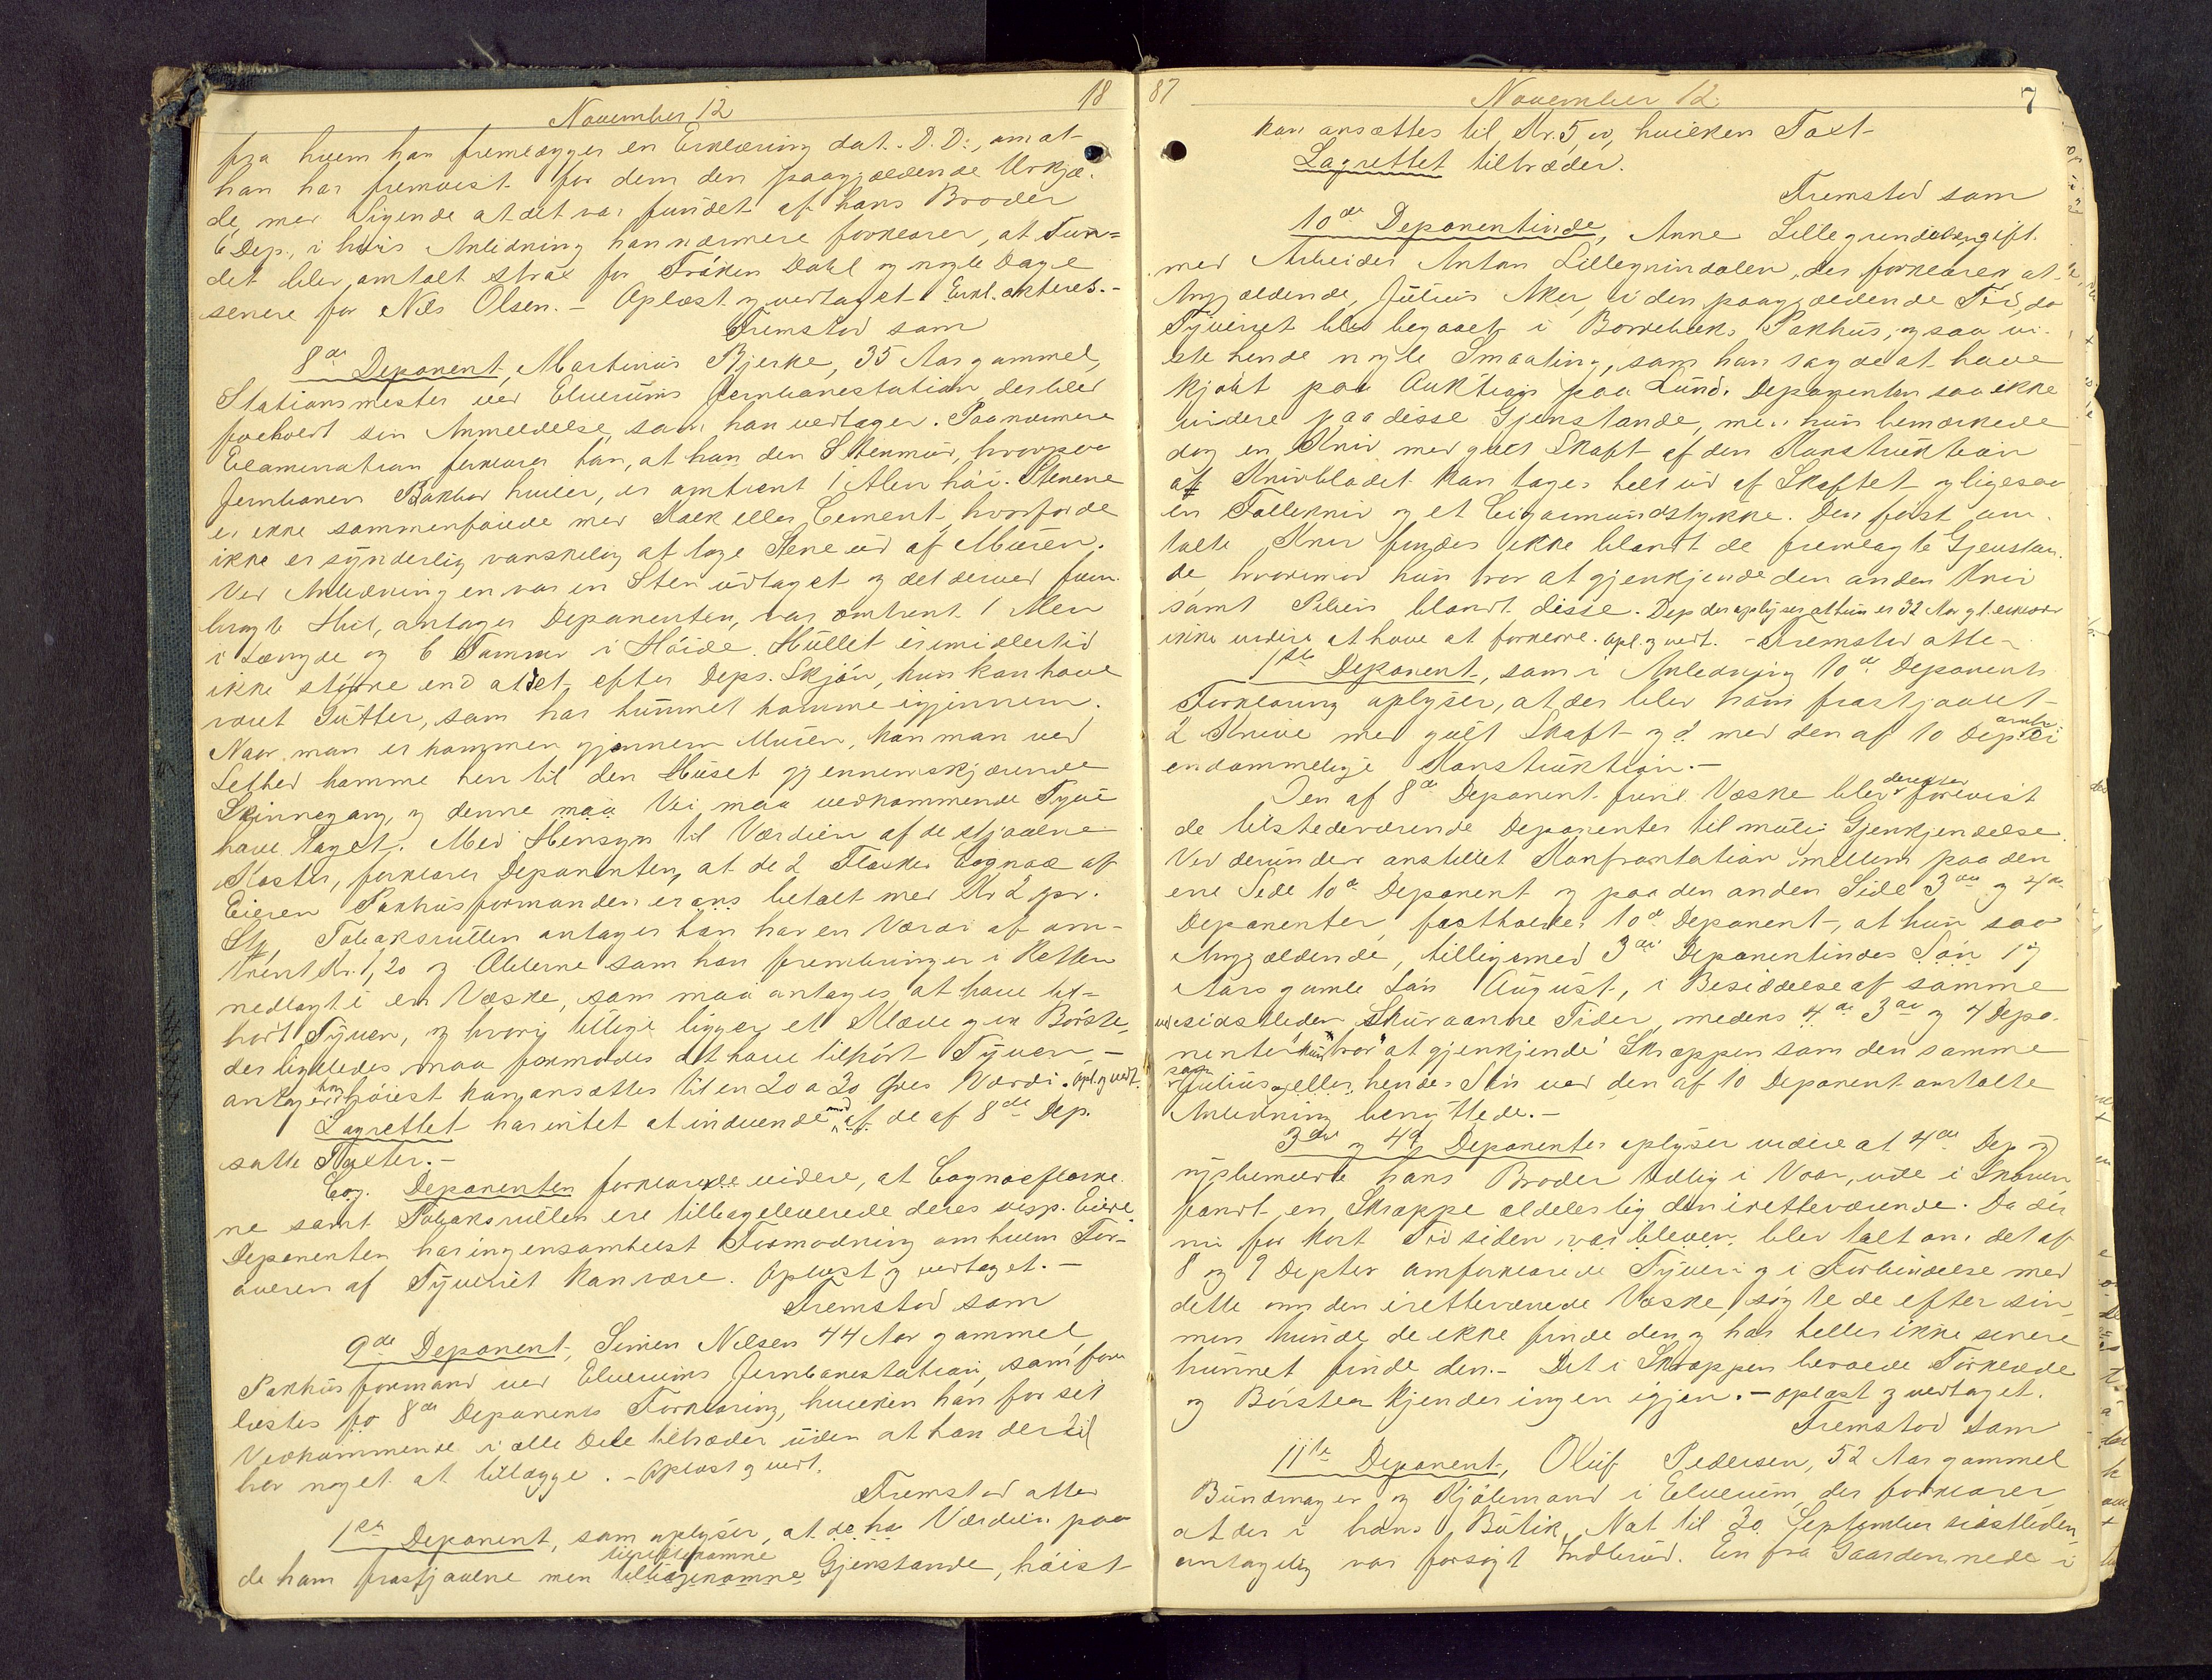 November 12 18
fra hvem han fremlægger en Erklæring dat. D.D., om at
han har fremvist for dem den paagjældende Urkjæ-
de, med Sigende at det var fundet af hans Broder
6 Dep., i hvis Anledning han nærmere forklarer, at Fun-
det blev omtalt strax for Frøken Dahl og nogle Dage
senere for Nils Olsen. - Oplæst og vedtaget. Erkl. akteres. -
Fremstod som
8de Deponent, Martinus Bjerke, 35 Aar gammel,
Stationsmester ved Elverums Jernbanestation der blev
foreholdt sin Anmeldelse, som han vedtager. Paa nærmere
Examination forklarer han, at han den Stenmur, hvorpaa
Jernbanens Pakbod hviler, er omtrent 1 Alen høi. Stenene
er ikke sammenføiede med Kalk eller Cement, hvorfor de
ikke er synderlig vanskelig at tage Stene ud af Muren.
Ved Anledningen var en Sten udtaget og det derved frem-
bragte Hul, antager Deponenten, var omtrent 1 Alen
i Længde og 6 Tommer i Høide. Hullet er imidlertid
ikke større end at det efter Deps. Skjøn, kun kan have
været Gutter, som har kunnet komme igjennem.
Naar man er kommen gjennem Muren, kan man ved
Lethed komme hen til den Huset gjennemskjærende
Skinnegang, og denne maa Vei maa vedkommende Tyve
have taget. Med Hensyn til Værdien af de stjaalne
Koster, forklarer Deponenten, at de 2 Flasker Cognac af
Eieren Pakhusformanden er betalt med Kr 2 pr.
Stk. Tobaksrullen antager han har en Værdi af om-
trent Kr. 1,20 og Æblerne som han frembringer i Retten
nedlagt i en Væske, som maa antages at have til-
hørt Tyven, og hvori tillige ligger et Klæde og en Børste,
der ligeledes maa formodes at have tilhørt Tyven, -
antager han høiest kan ansættes til en 20 a 30 Øres Værdi. Opl. og vedt.
Lagrettet har intet at indvende mod af de af 8de Dep.
satte Taxter. -
Deponenten forklarede videre, at Cognacflaske-
ne samt Tobaksrullen ere tilbageleverede deres resp. Eiere.
Deponenten har ingensomhelst Formodning om hvem For-
øveren af Tyveriet kan være. Oplæst og vedtaget. -
Fremstod som
9de Deponent, Simen Nilsen 44 Aar gammel,
Pakhusformand ved Elverums Jernbanestation, som fore-
læstes 8de Deponents Forklaring, hvilken han for sit
Vedkommende i alle Dele tiltræder uden at han dertil
har noget at tillægge. - Oplæst og vedt.
Fremstod atter
1ste Deponent, som oplyser, at de ha Værdien paa
de ham frastjaalne men tilrettekomne tilbagekomne Gjenstande, høist
87 November 12. 7
kan ansættes til Kr. 5,00, hvilken Taxt
Lagrettet tiltræder.
Fremstod som
10de Deponentinde, Anne Lillegrindalen, gift
med Arbeider Anton Lillegrindalen, der forklarer, at
Angjældende, Julius Aker, i den paagjældende Tid, da
Tyveriet blev begaaet i Borrebæks Pakhus, og saa vi-
ste hende nogle Smaating, som han sagde at have
kjøbt paa Auktion paa Lund. Deponenten saa ikke
videre paa disse Gjenstande, men hun bemærkede
dog en Kniv med gult Skaft af den Konstruktion
at Knivbladet kan tages helt ud af Skaftet og ligesaa
en Follekniv og et Cigarmundstykke. Den først om-
talte Kniv findes ikke blandt de fremlagte Gjenstan-
de, hvorimod hun tror at gjenkjende den anden Kniv
samt Piben blandt disse. Dep. der oplyser at hun er 32 Aar gl. erklærer
ikke videre at have at forklare. Opl. og vedt. - Fremstod atter
1ste Deponent, som i Anledning 10de Deponents
Forklaring oplyser, at der blev ham frastjaalet
2 Knive med gult Skaft og med den af 10 Dep. omtalte
eiendommelige Konstruktion. -
Den af 8de Deponent fund. Væske blev derefter forevist
de tilstedeværende Deponenter til mulig Gjenkjendelse.
Ved derunder anstillet Konfrontation mellem paa den
ene Side 10de Deponent og paa den anden Side 3die og 4de
Deponenter, fastholder 10de Deponent, at hun saa
Angjældende, tilligemed 3die Deponentindes Søn 17
Aars gamle Søn August, i Besiddelse af samme
ved sidstleden Skuraanne Tider, medens 4de 3die og 4 Depo-
nenter kun tror at gjenkjende Skræppen som den samme
som Julius eller hendes Søn ved den af 10 Deponent omtalte
Anledning benyttede. -
3die og 4de Deponenter oplyser videre at 4de Dep og
nysbemeldte hans Broder tidlig i Vaar, ude i Skoven
fandt en Skræppe aldeles lig den iretteværende. Da der
nu for kort Tid siden var bleven blev talt om det af
8 og 9 Depter omforklarede Tyveri og i Forbindelse med
dette om den iretteværende Væske, søgte de efter sin,
men kunde de ikke finde den og har heller ikke senere
kunnet finde den. - Det i Skræppen bevarede Tørklæde
og Børsten kjender ingen igjen. - Oplæst og vedtaget.
Fremstod som
11te Deponent, Oluf Pedersen, 52 Aar gammel
Bundmager og Kjøbmand i Elverum, der forklarer
at der i hans Butik, Nat til 30 September sidstleden
antagelig var forsøgt Indbrud. En fra Gaarden nede i